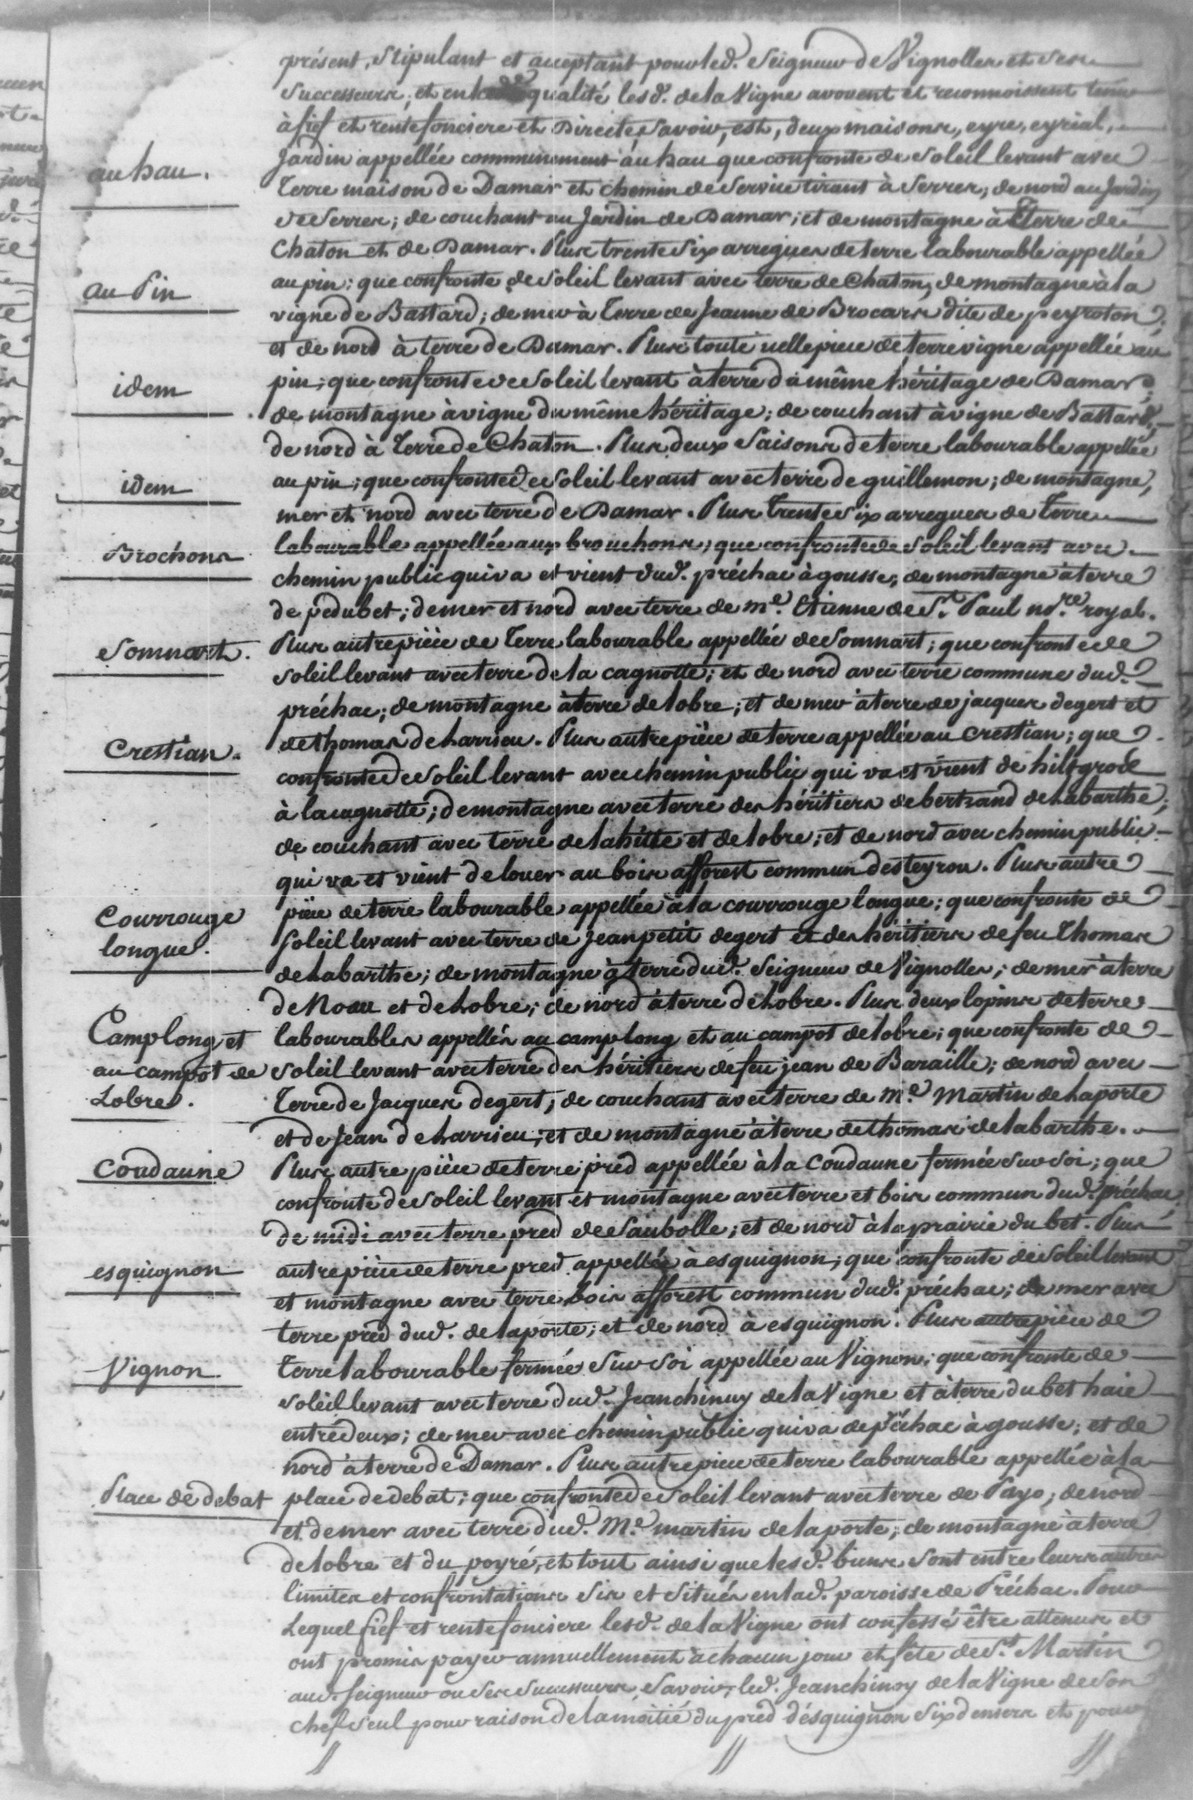 présent, stipulant et acceptant pour led. Seigneur de Vignolles et ses
successeurs; et en qualité lesd. de la Vigne avouent et reconnoissent tenir
à fief et rente fonciere et Directe savoir, est, deux maisons, eyre, eyrial,
au hau.
Jardin appellée communement au hau que confronte de Soleil levant avec
terre maison de Damar et chemin de Service tirant à Serres; de nord au Jardin
de Serres; de couchant au Jardin de Damar; et de montagne à terre de
Chaton et de Damar. Plus trente six arregues de terre labourable appellée
au Pin
au pin: que confronte de Soleil levant avec terre de Chaton, de montagne à la
vigne de Bastard; de mer à Terre de Jeanne de Brocars dite de peyroton;
et de nord à terre de Damar. Plus toute icelle piece de terre vigne appellée au
idem
pin; que confronte de Soleil levant à terre du même héritage de Damar;
de montagne à vigne du même héritage; de couchant à vigne de Bastard,
de nord à Terre de Chaton. Plus deux Saisons de terre labourable appellée
idem
au pin; que confronte de Soleil levant avec terre de guillemon; de montagne,
mer et nord avec terre de Damar. Plus Trente Six arregues de Terre
Brochons
labourable appellée aux brouchons; que confronte de Soleil levant avec
chemin public qui va et vient dud. préchac à gousse, de montagne à terre
de pedubet; de mer et nord avec terre de me. Etienne de St. Paul nore. royal.
Somnart.
Plus autre pièce de Terre labourable appellée de Somnart; que confronte de
soleil levant avec terre de la cagnotte; et de nord avec terre commune dud.
préchac; de montagne à terre de lobre; et de mer à terre de jacques degert et
Crestian.
de thomas de Larrieu. Plus autre pièce de terre appellée au Crestian; que
confronte de Soleil levant avec chemin public qui va et vient de
à la cagnotte; de montagne avec terre des héritiers de bertrand de Labarthe;
de couchant avec terre de lahitte et de lobre; et de nord avec chemin public
qui va et vient de louer au bois afforest commun desteyrou. Plus autre
Courrouge
longue.
pièce de terre labourable appellée à la courrouge longue; que confronte de
Soleil levant avec terre de jean petit degert et des héritiers de feu Thomas
de Labarthe; de montagne à terre dud. Seigneur de Vignolles; de mer à terre
de Noau et de Lobre; de nord à terre de Lobre. Plus deux lopins de terre
Camplong et
au campot de
Lobre.
labourables appellés au camplong et au campot de lobre; que confronte de
soleil levant avec terre des héritiers de feu jean de Baraille; de nord avec
Terre de Jacques degert; de couchant avec terre de me. Martin de Laporte
et de Jean de Larrieu; et de montagne à terre de thomas de labarthe.
Coudaune
Plus autre pièce de terre pred appellée à la Coudaune fermée sur soi; que
confronte de Soleil levant et montagne avec terre et bois commun dud. préchac
de midi avec terre pred de Saubolle; et de nord à la prairie du bet. Plus
esquignon
autre pièce de terre pred appellée à esquignon; que confronte de Soleil levant
et montagne avec terre bois afforest commun dud. préchac; de mer avec
terre pred dud. de laporte; et de nord à esquignon. Plus autre pièce de
Vignon
Terre labourable fermée sur soi appellée au Vignon; que confronte de
soleil levant avec terre dud. Jeanchinoy de la Vigne et à terre du bet haie
entre deux; de mer avec chemin public qui va de préchac à gousse; et de
nord à terre de Damar. Plus autre piece de terre labourable appellée à la
Place de debat
place de debat; que confronte de Soleil levant avec terre de Payo; de nord
et de mer avec terre dud. Me. martin de laporte; de montagne à terre
de lobre et du poyré, et tout ainsi que lesd. biens sont entre leurs autres
limites et confrontations sis et situés en lad. paroisse de Préchac. Pour
Lequel fief et rente fonciere lesd. de la Vigne ont confessé être attenus et
ont promis payer annuellement à chacun jour et fête de St. Martin
aud. Seigneur ou ses Successeurs, Savoir, led. Jeanchinoy de la Vigne de Son
chef seul pour raison de la moitié du pred d'ésquignon Six deniers et pour